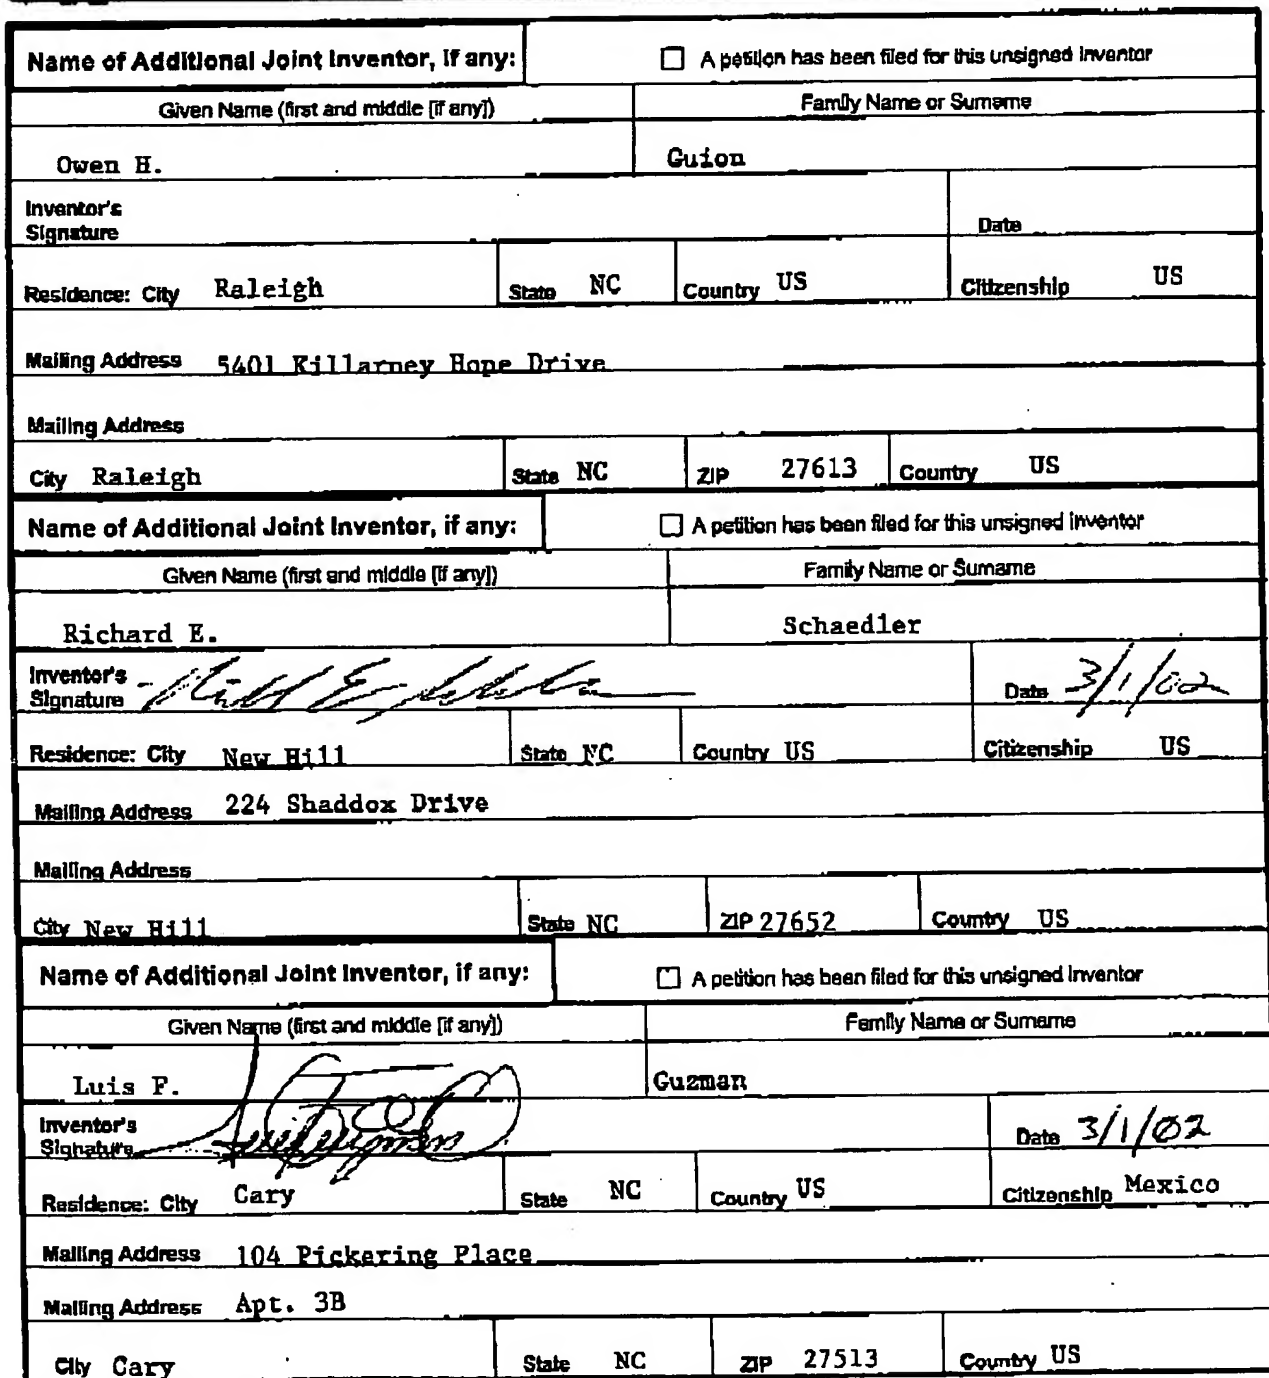 Name of Additional Joint Inventor, if any: ☐ A petition has been filed for this unsigned inventor
Given Name (first and middle [if any]) Family Name or Surname
Owen H. Guion
Inventor's
Signature Date
Residence: City Raleigh State NC Country US Citizenship US
Mailing Address 5401 Killarney Hope Drive
Mailing Address
City Raleigh State NC ZIP 27613 Country US
Name of Additional Joint Inventor, if any: ☐ A petition has been filed for this unsigned inventor
Given Name (first and middle [if any]) Family Name or Surname
Richard E. Schaedler
Inventor's
Signature Date 3/1/02
Residence: City New Hill State NC Country US Citizenship US
Mailing Address 224 Shaddox Drive
Mailing Address
City New Hill State NC ZIP 27652 Country US
Name of Additional Joint Inventor, if any: ☐ A petition has been filed for this unsigned inventor
Given Name (first and middle [if any]) Family Name or Surname
Luis F. Guzman
Inventor's
Signature Date 3/1/02
Residence: City Cary State NC Country US Citizenship Mexico
Mailing Address 104 Pickering Place
Mailing Address Apt. 3B
City Cary State NC ZIP 27513 Country US